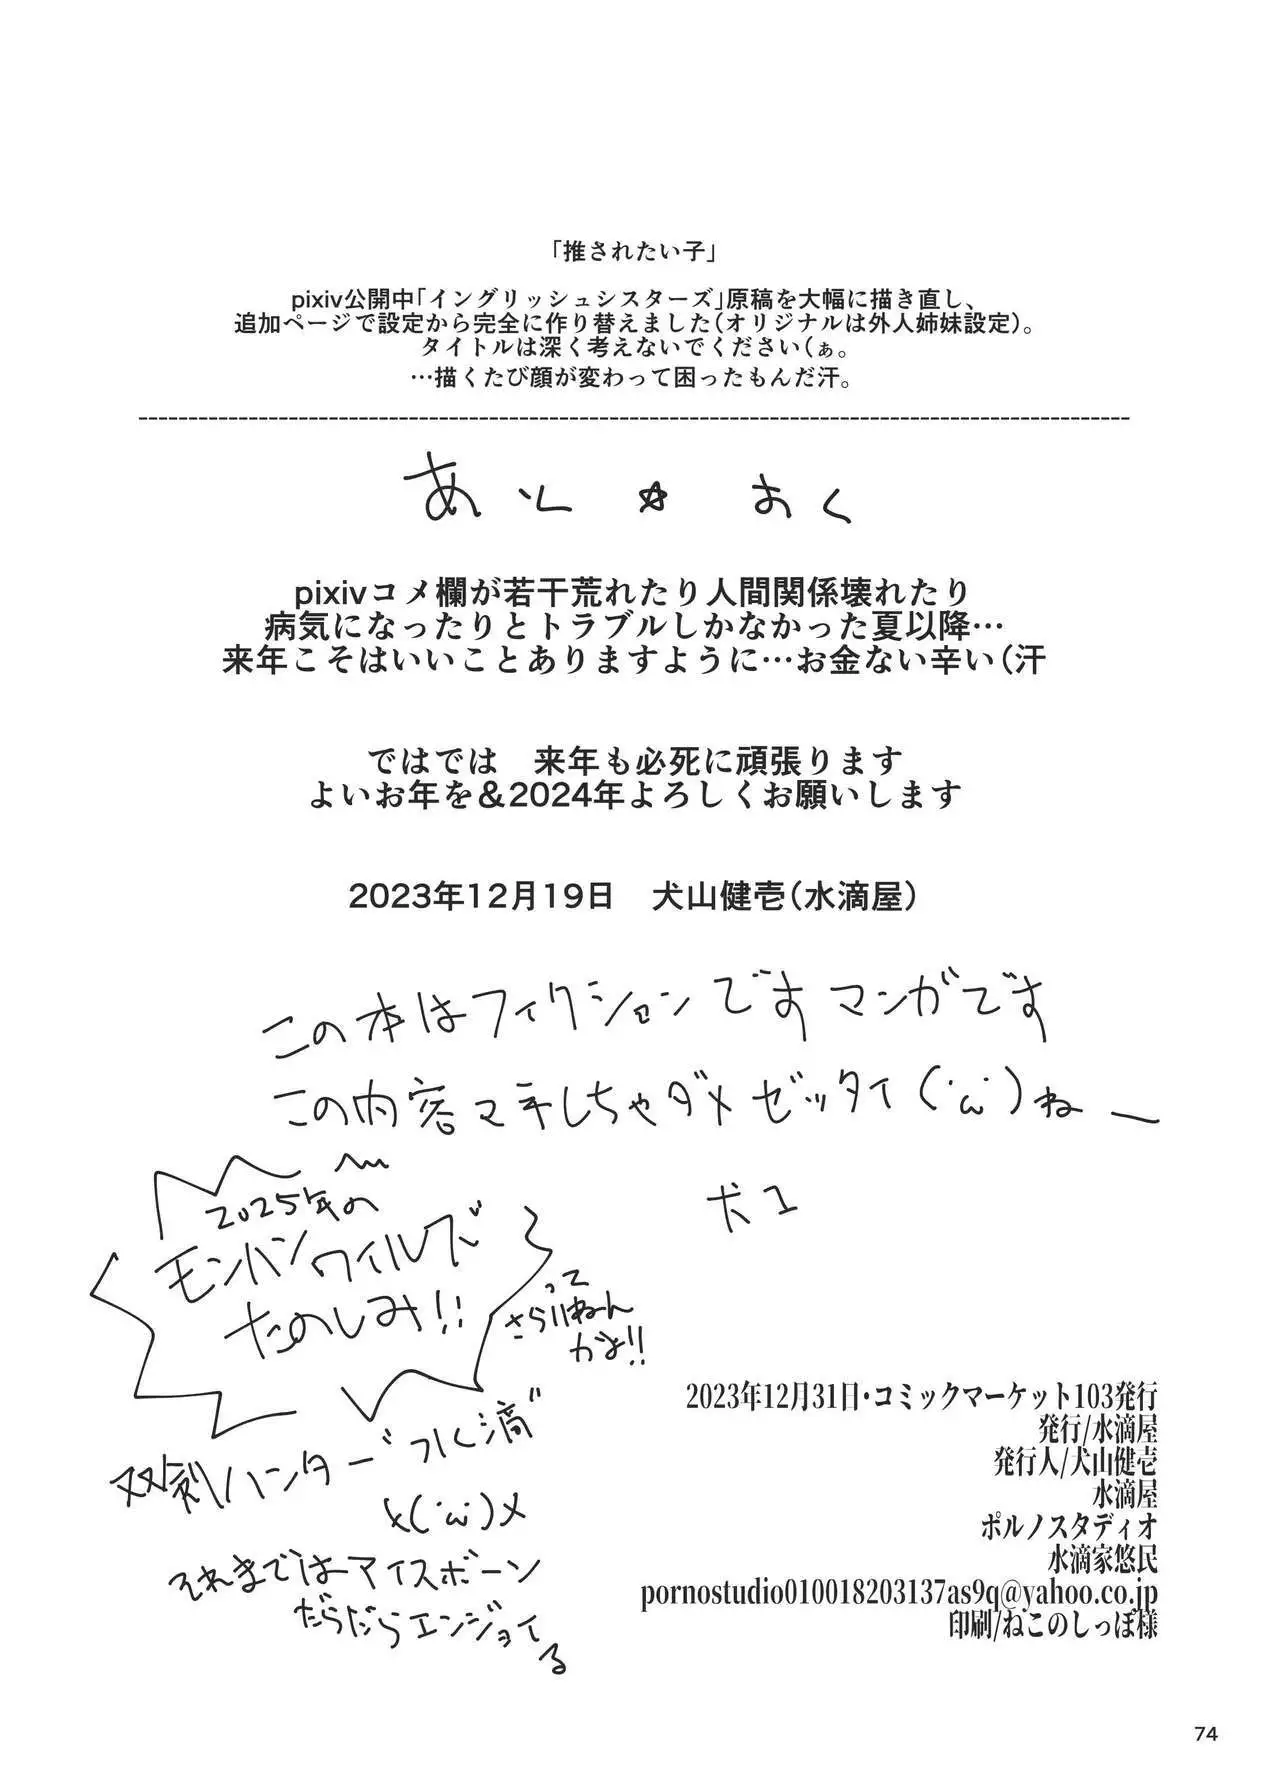 「推されたい子」
pixiv公開中「イングリッシュシスターズ」原稿を大幅に描き直し、
追加ページで設定から完全に作り替えました(オリジナルは外人姉妹設定)。
タイトルは深く考えないでください(ぁ。
…描くたび顔が変わって困ったもんだ汗。
あとー☆おく
pixivコメ欄が若干荒れたり人間関係壊れたり
病気になったりとトラブルしかなかった夏以降…
来年こそはいいことありますように…お金ない辛い(汗
ではでは　来年も必死に頑張ります
よいお年を&2024年よろしくお願いします
2023年12月19日　犬山健壱(水滴屋)
この本はフィクションですマンガです
この内容マネしちゃダメゼッタイ(´ω`)ねー
犬1
2025年の
モンハンワイルズ
たのしみ!!
って
さらいねん
かよ!!
双剣ハンター"水滴"
×(´ω`)×
それまではアイスボーン
だらだらエンジョイ
る
2023年12月31日・コミックマーケット103発行
発行/水滴屋
発行人/犬山健壱
水滴屋
ポルノスタディオ
水滴家悠民
pornostudio010018203137as9q@yahoo.co.jp
印刷/ねこのしっぽ様
74